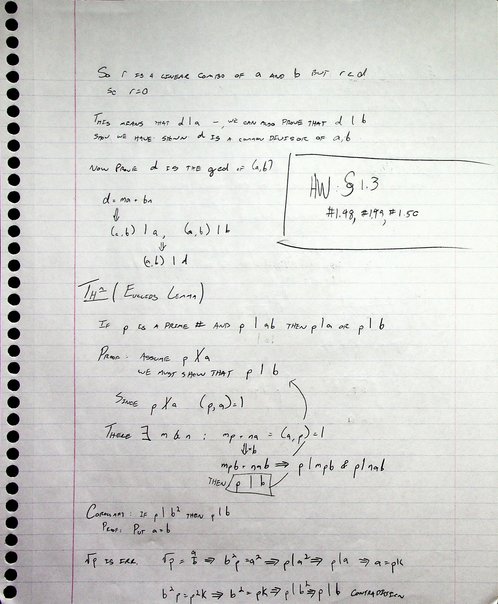 So r is a linear combo of a and b but r < d
so r=0
This means that d | a – we can also prove that d | b
so we have shown d is a common divisor of a,b
Now prove d is the gcd of (a,b)
HW § 1.3
#1.48, #1.49, #1.50
d = ma + bn
⇓
(a,b) | a, (a,b) | b
⇓
(a,b) | d
Thm (Euclids Lemma)
If p is a prime # and p | ab then p | a or p | b
Proof: Assume p ∤ a
We must show that p | b
Since p ∤ a (p,a)=1
There ∃ m & n ; mp + na = (a,p) = 1
⇓·b
mpb + nab ⇒ p | mpb & p | nab
Then p | b
Corollary: If p | b² then p | b
Proof: Put a=b
√p is irr. √p = a/b ⇒ b²p = a² ⇒ p|a² ⇒ p|a ⇒ a = pk
b²p = p²k ⇒ b² = pk ⇒ p|b² ⇒ p|b contradiction